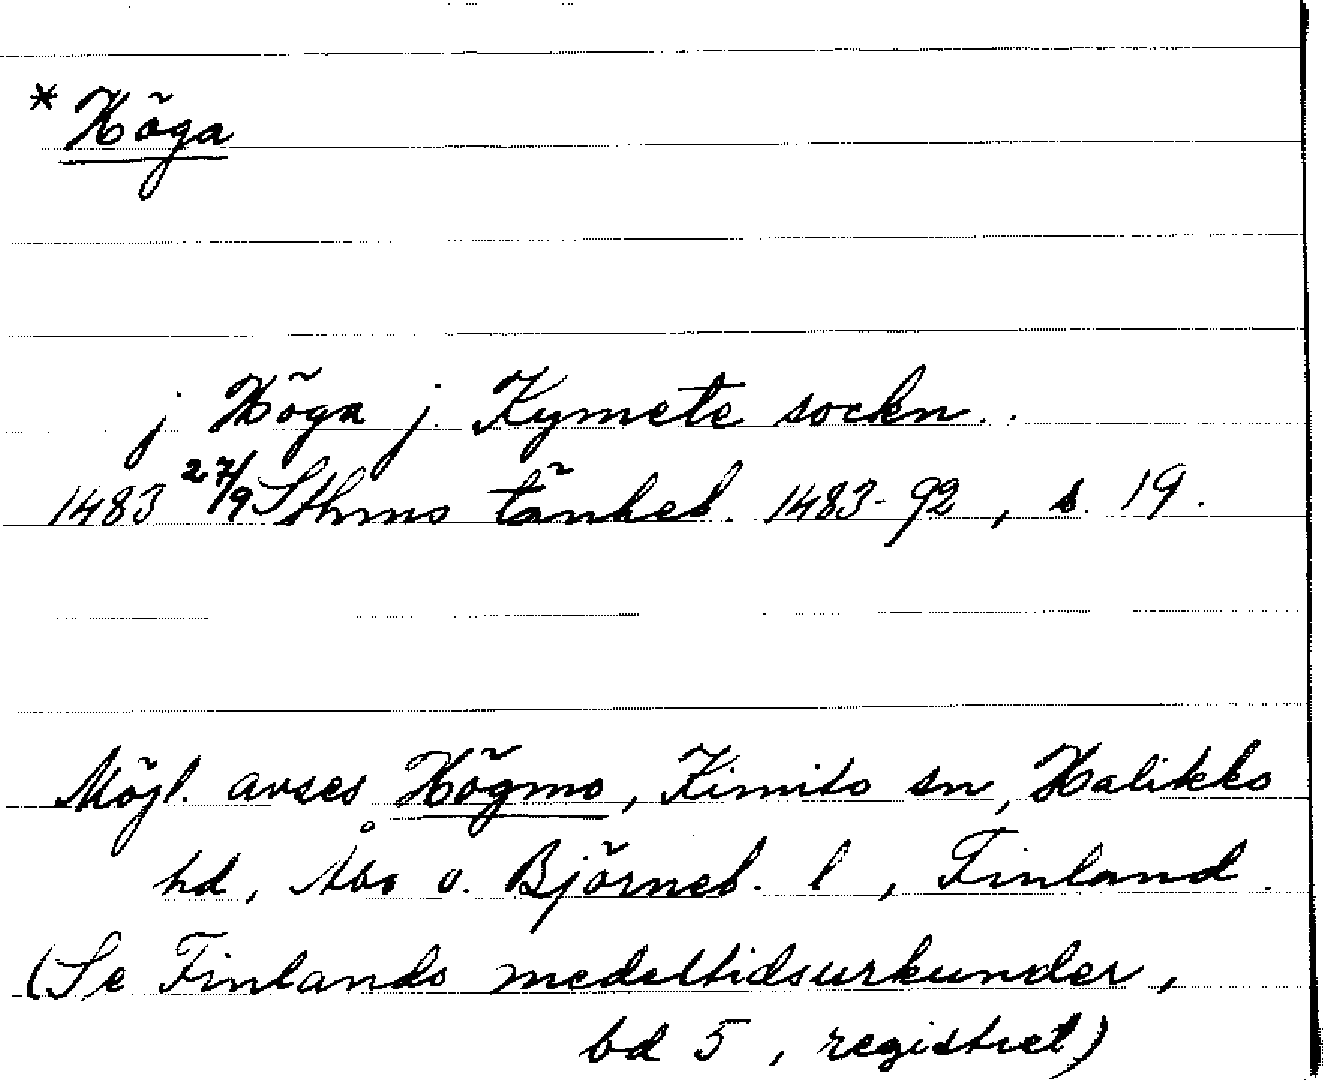 * Höga
j Höga j Kymete sockn.
1483 27/9 Sthms tänkeb. 1483-92, s. 19.
Möjl. avses Högmo, Kimito sn, Halikko
hd, Åbo o. Björneb. l, Finland.
(Se Finlands medeltidsurkunder,
bd 5, registret)